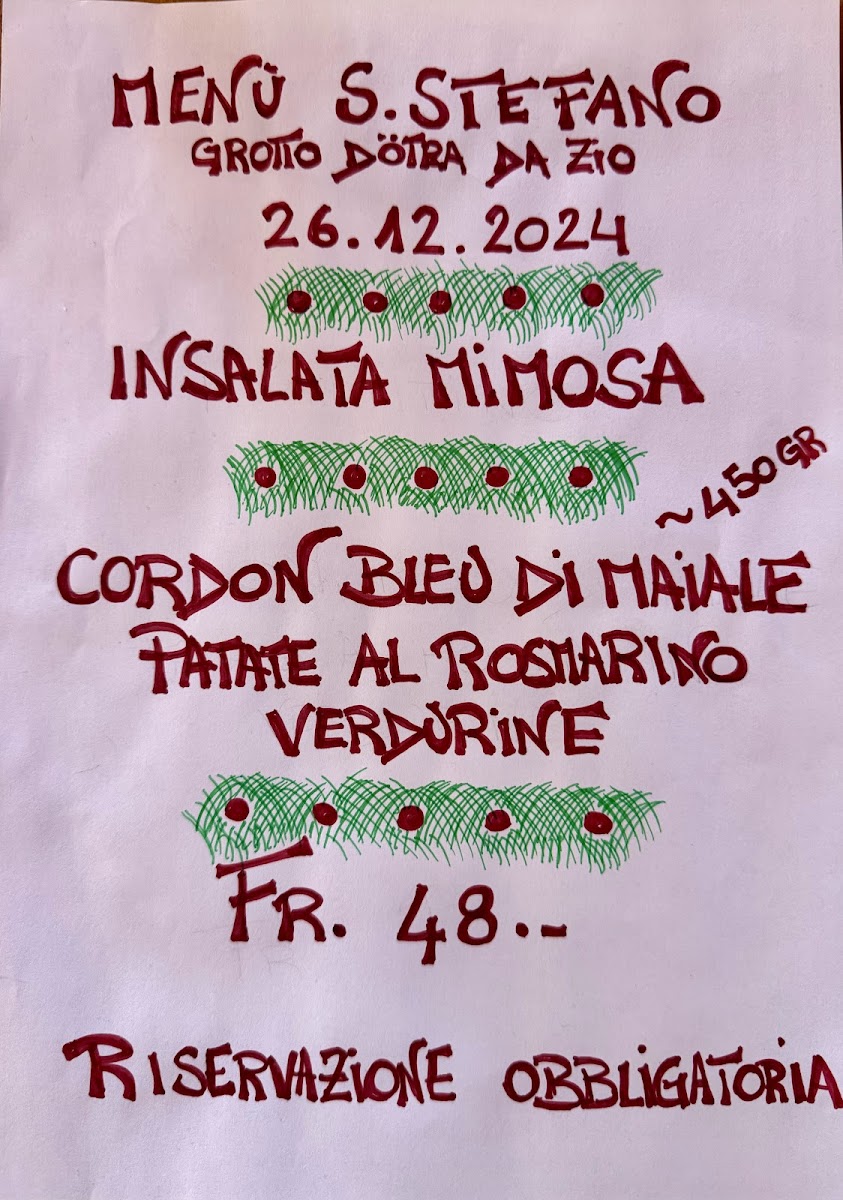 MENÙ S. STEFANO
GROTTO DÖTRA DA ZIO
26.12.2024
INSALATA MiMOSA
~450GR
CORDON BLEU Di MAiALE
PATATE AL ROSMARINO
VERDURiNE
FR. 48.-
RISERVAZiONE OBBLiGATORiA